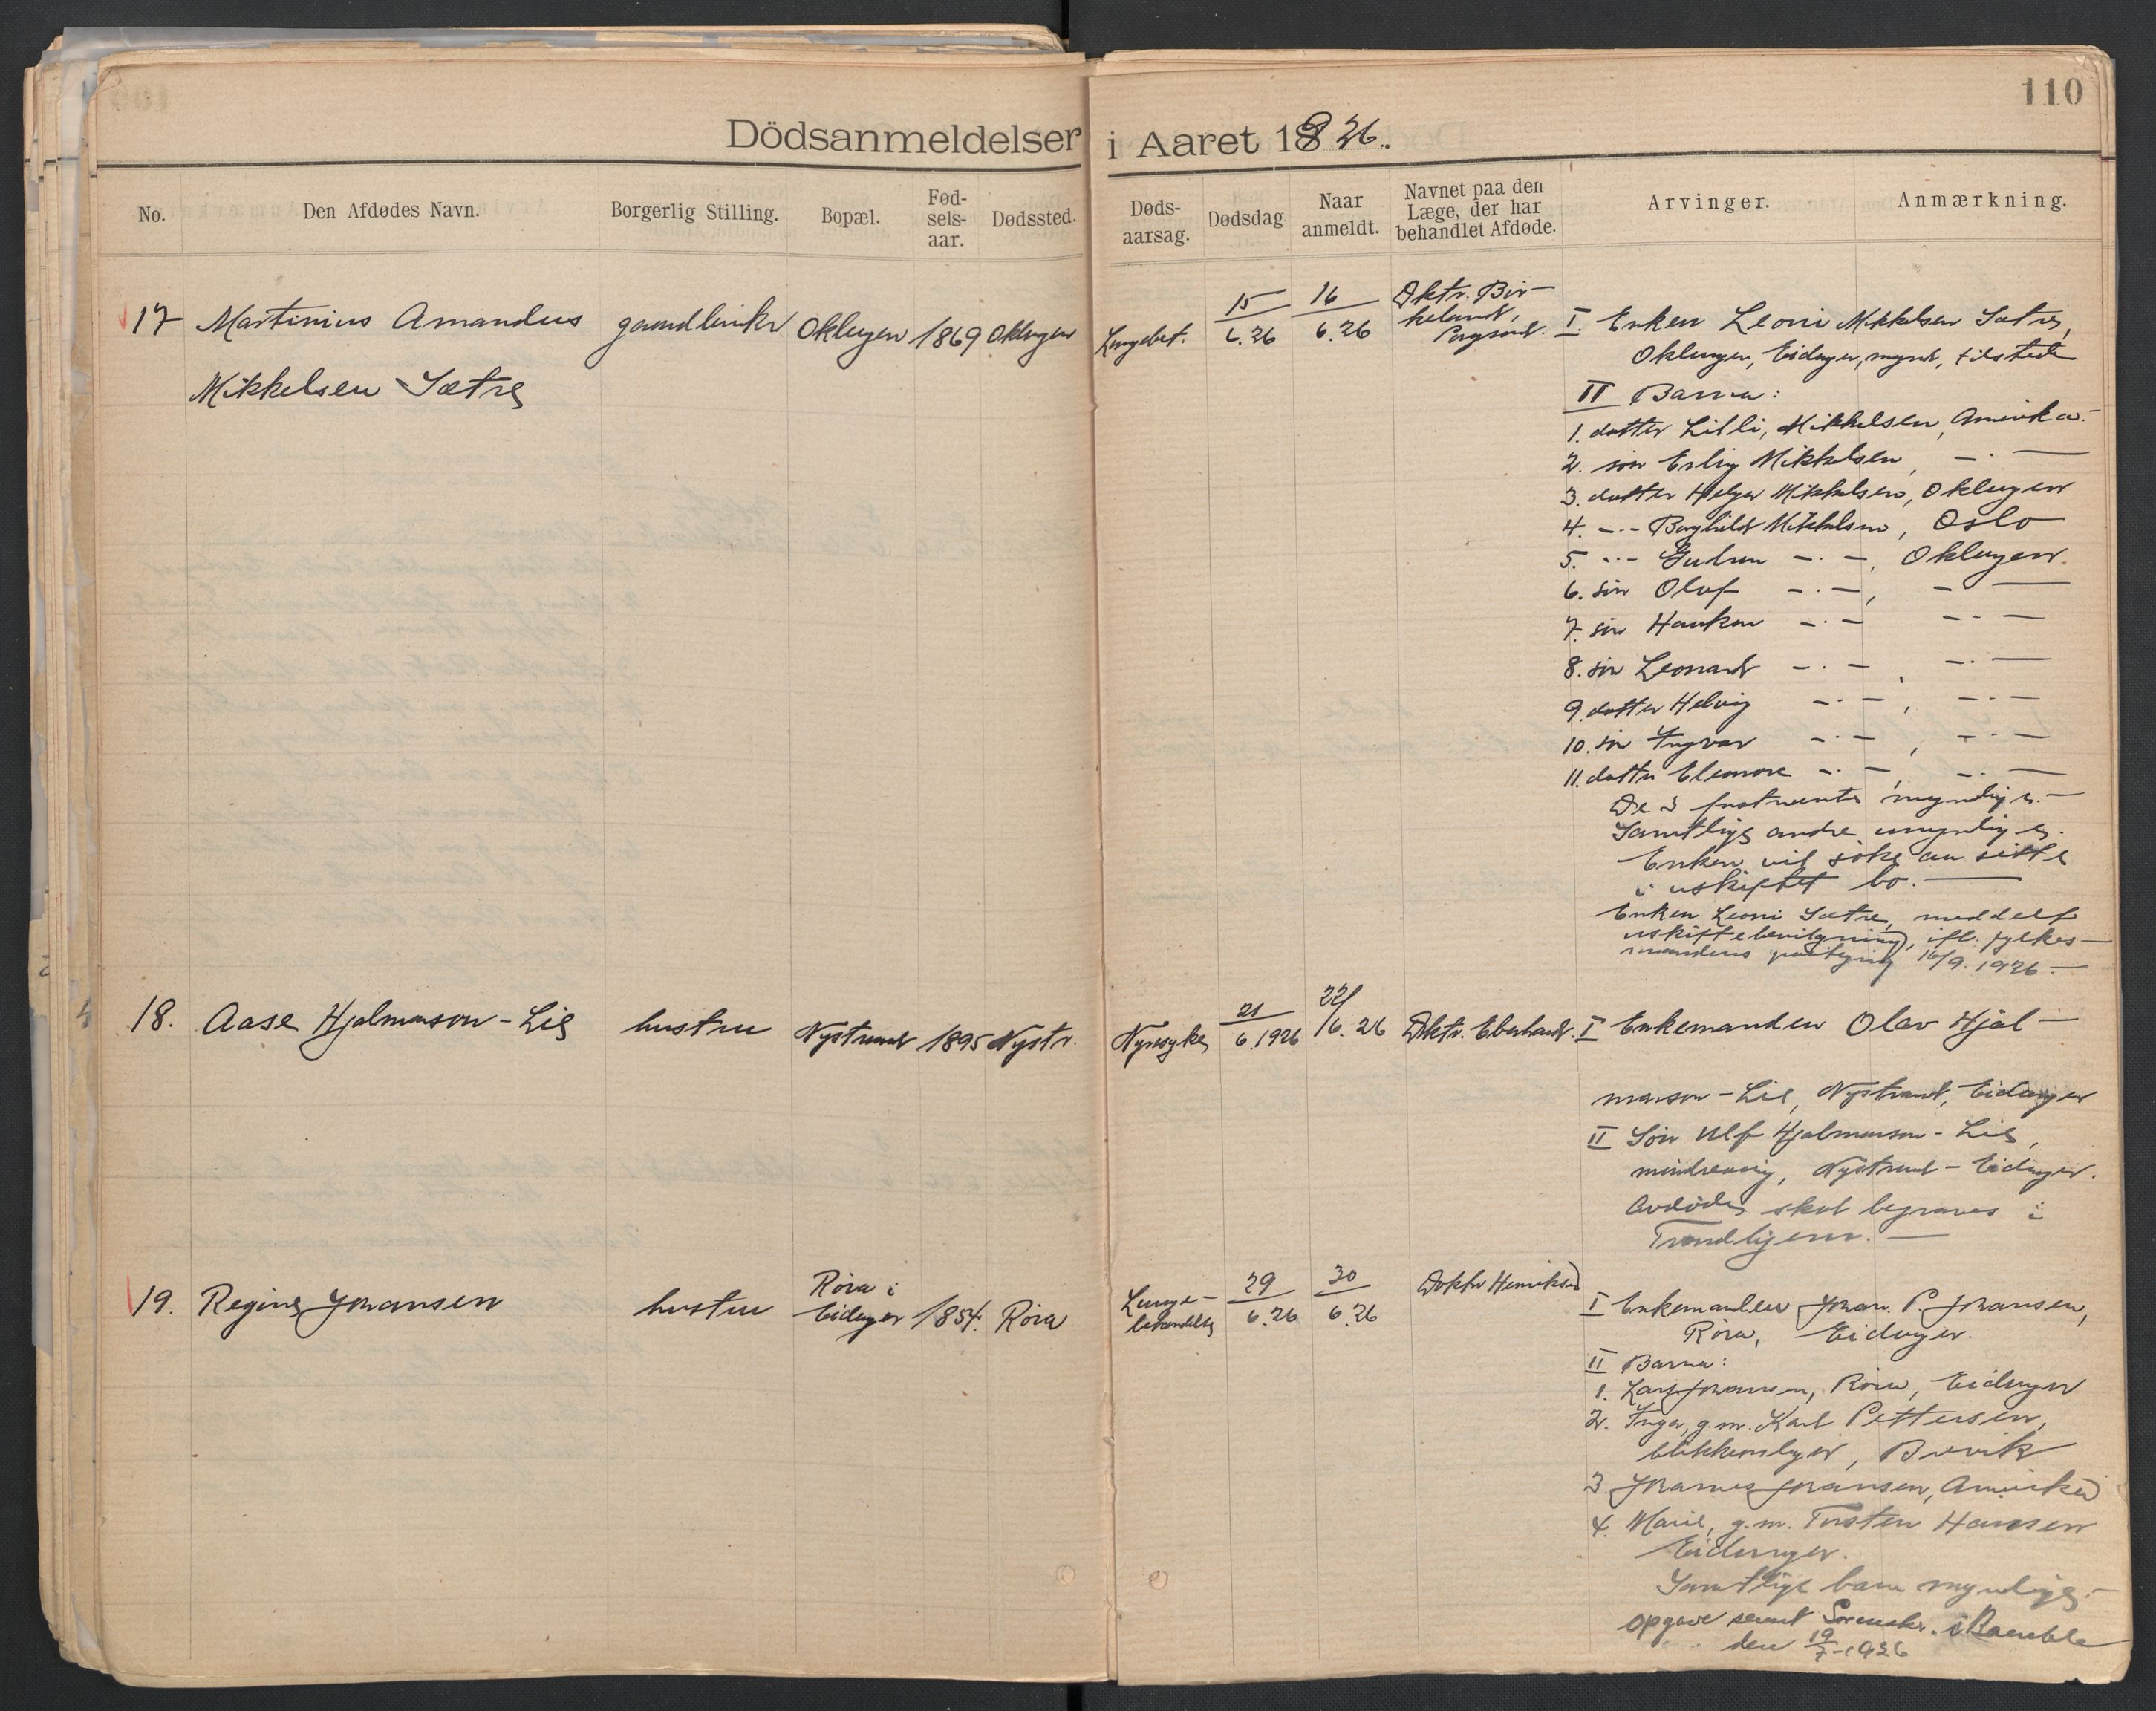 110
Dödsanmeldelser i Aaret 1926.
No. Den Afdødes Navn. Borgerlig Stilling. Bopæl. Fød-sels-aar. Dødssted. Døds-aarsag. Dødsdag Naar anmeldt. Navnet paa den Læge, der har behandlet Afdøde. Arvinger. Anmærkning.
17 Martinius Amandus gaardbruker Oklungen 1869 Oklungen Lungebet. 15/6.26 16/6.26 Dktr. Bir-
Mikkelsen Sætre
keland, Porsgrund.
I. Enken Leoni Mikkelsen Sætre,
Oklungen, Eidanger, myndt, tilstede
II Barna:
1. datter Lilli, Mikkelsen, Amerika.-
2. søn Erling Mikkelsen, -.-
3. datter Helga Mikkelsen, Oklungen
4. -.- Borghild Mikkelsen, Oslo
5. -.- Gudrun -.-, Oklungen.
6. søn Olaf -.-, -
7. søn Haakon -.- -.-
8. søn Leonard -.-, -.-
9. datter Helvig -.-, -.-
10. søn Ingvar -.-, -.-
11. datter Elenore -.-, -.-
De 3 førstnevnte myndige.-
Samtlige andre umyndige.
Enken vil søke om sitte
i uskiftet bo.-
Enken Leoni Sætre, meddelt
uskiftebevilgning, ifl. fylkes-
mandens 16/9.1926.-
18. Aase Hjalmarson-Lie hustru Nystrand 1895 Nystr. Nyresyke 21/6.1926 22/6.26 Dktr. Eberhardt. I Enkemanden Olav Hjal-
marson-Lie, Nystrand, Eidanger
II Søn Ulf Hjalmarson-Lie,
mindreaarig, Nystrand-Eidanger.
Avdøde skal begraves i
Trondhjem.-
19. Regine Johansen hustru Røra i Eidanger 1854. Røra Lunge-betændelse 29/6.26 30/6.26 Doktor Henriksen
I Enkemanden Johan P. Johansen,
Røra, Eidanger.
II Barna:
1. Lars Johansen, Røra, Eidanger
2. Inga, g.m. Karl Pettersen,
blikkenslager, Brevik
3. Johannes Johansen, Amerika
4. Marie, g.m. Torsten Hansen
Eidanger.
Samtlige barn myndige.-
Opgave sendt Sorenskr. i Bamble
den 19/7-1926